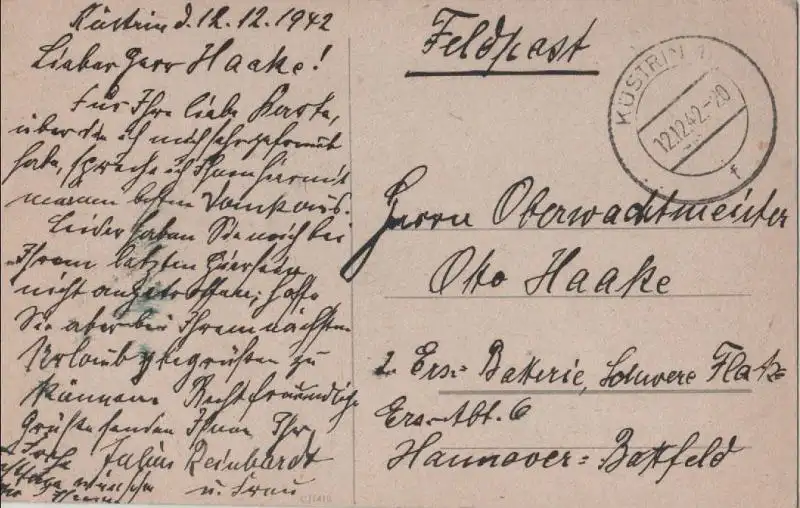 Küstrin d. 12.12.1942
Lieber Herr Haake!
Für Ihre liebe Karte,
über die ich mich sehr gefreut
habe, spreche ich Ihnen hiermit
meinen besten Dank aus.
Leider haben Sie mich bei
Ihrem letzten Hiersein
nicht angetroffen; hoffe
Sie aber bei Ihrem nächsten
Urlaub begrüßen zu
können. Recht freundliche
Grüße senden Ihnen Ihr
Julius Reinhardt
u. Frau
Frohe
wünschen
Feldpost
KÜSTRIN 1
12.12.42.-20
f
Herrn Oberwachtmeister
Otto Haake
2. Ers.= Batterie, Schwere Flak=
Ers.-Abt. 6
Hannover=Bothfeld